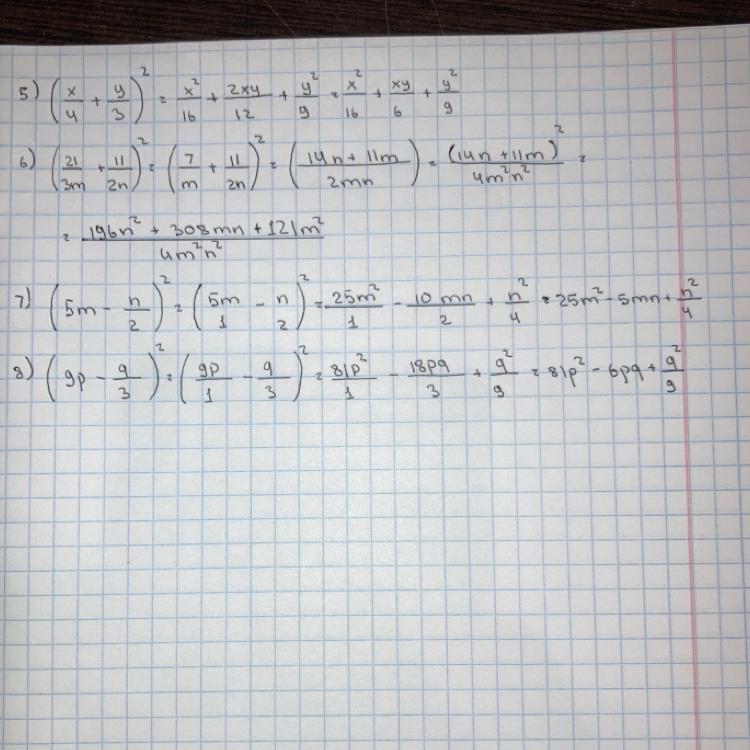 5) (x/4 + y/3)² = x²/16 + 2xy/12 + y²/9 = x²/16 + xy/6 + y²/9
6) (21/3m + 11/2n)² = (7/m + 11/2n)² = (14n + 11m/2mn) = (14n + 11m)²/4m²n² =
= 196n² + 308mn + 121m²/4m²n²
7) (5m - n/2)² = (5m/1 - n/2)² = 25m²/1 - 10mn/2 + n²/4 = 25m² - 5mn + n²/4
8) (9p - q/3)² = (9p/1 - q/3)² = 81p²/1 - 18pq/3 + q²/9 = 81p² - 6pq + q²/9